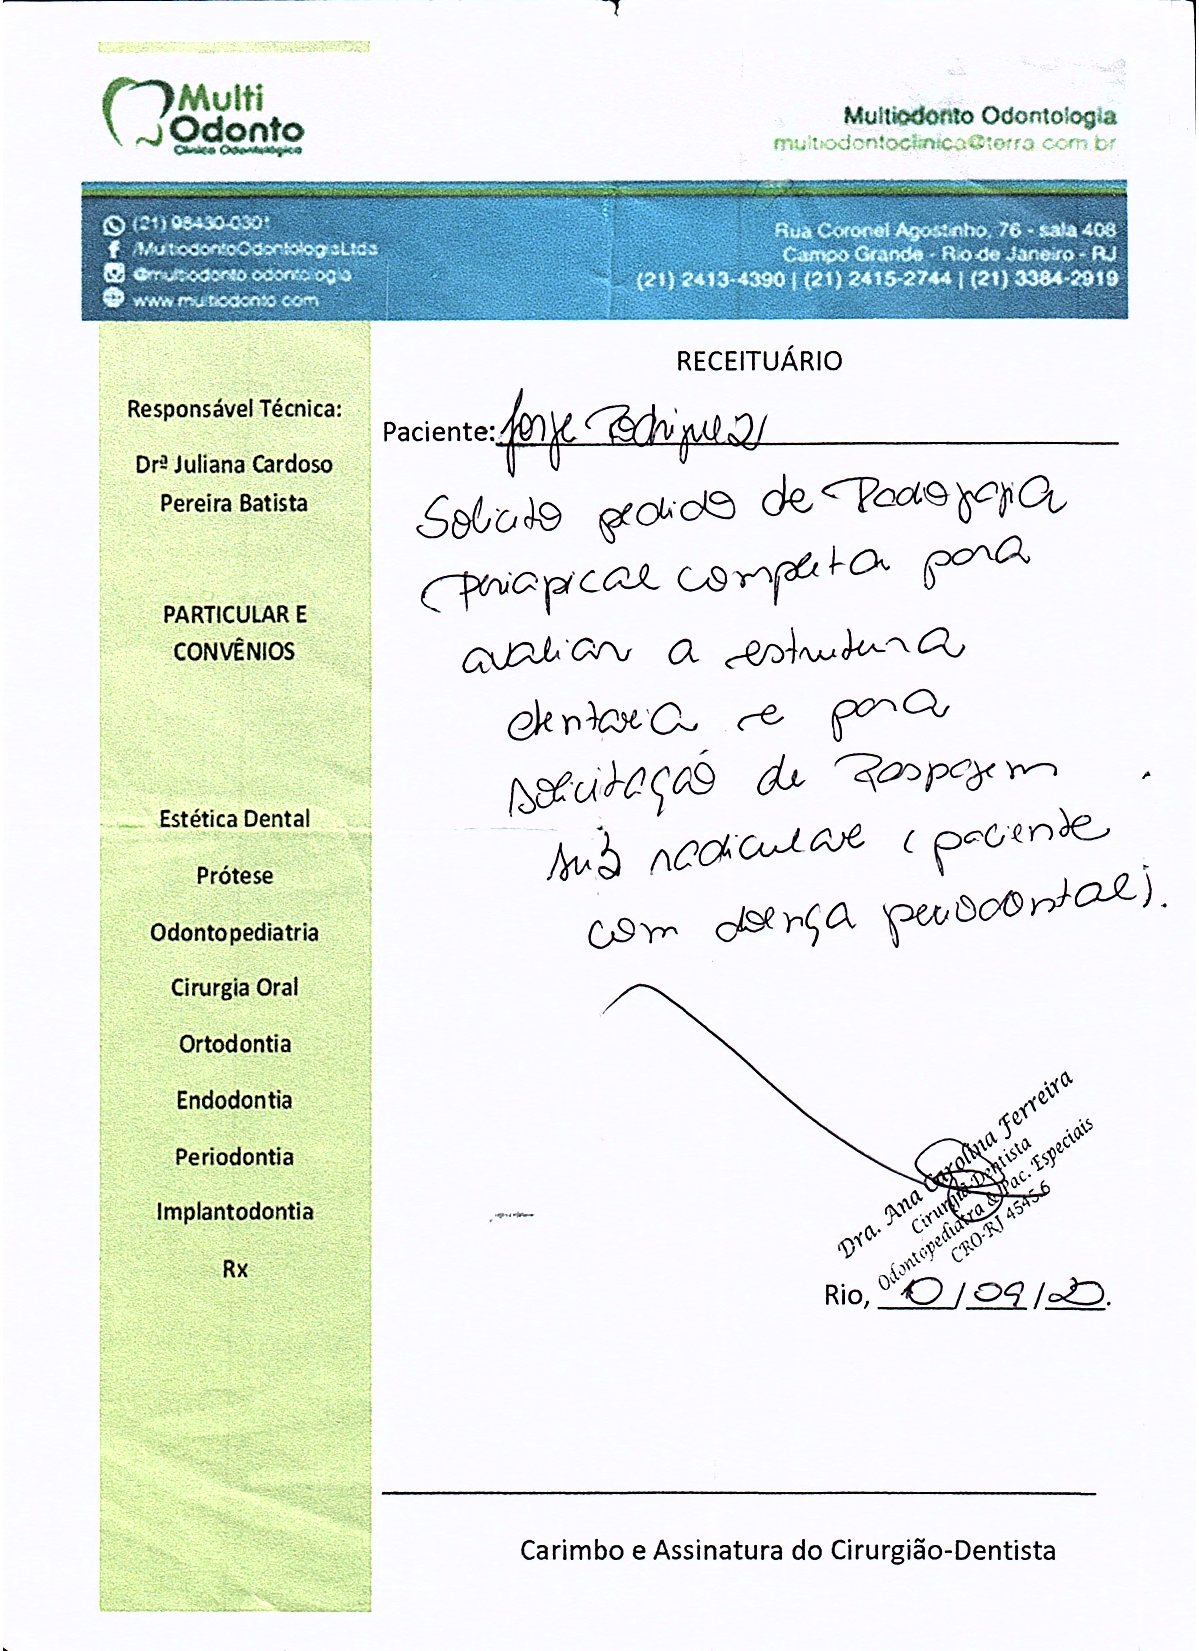 Multi
Odonto
Clínica Odontológica
Multiodonto Odontologia
multiodontoclinica@terra.com.br
(21) 98430-0301
/MultiodontoOdontologiaLtda
@multiodonto.odontologia
www.multiodonto.com
Rua Coronel Agostinho, 76 - sala 408
Campo Grande - Rio de Janeiro - RJ
(21) 2413-4390 | (21) 2415-2744 | (21) 3384-2919
Responsável Técnica:
Drª Juliana Cardoso
Pereira Batista
PARTICULAR E
CONVÊNIOS
Estética Dental
Prótese
Odontopediatria
Cirurgia Oral
Ortodontia
Endodontia
Periodontia
Implantodontia
Rx
RECEITUÁRIO
Paciente: Jorge Rodriguez
Solicito pedido de Radiografia
Periapical completa para
avaliar a estrutura
dentaria e para
solicitação de Raspagem
sub radicular (paciente
com doença periodontal).
Dra. Ana Carolina Ferreira
Cirurgiã-Dentista
Odontopediatra & Pac. Especiais
CRO-RJ 45456
Rio, 10/09/20.
Carimbo e Assinatura do Cirurgião-Dentista